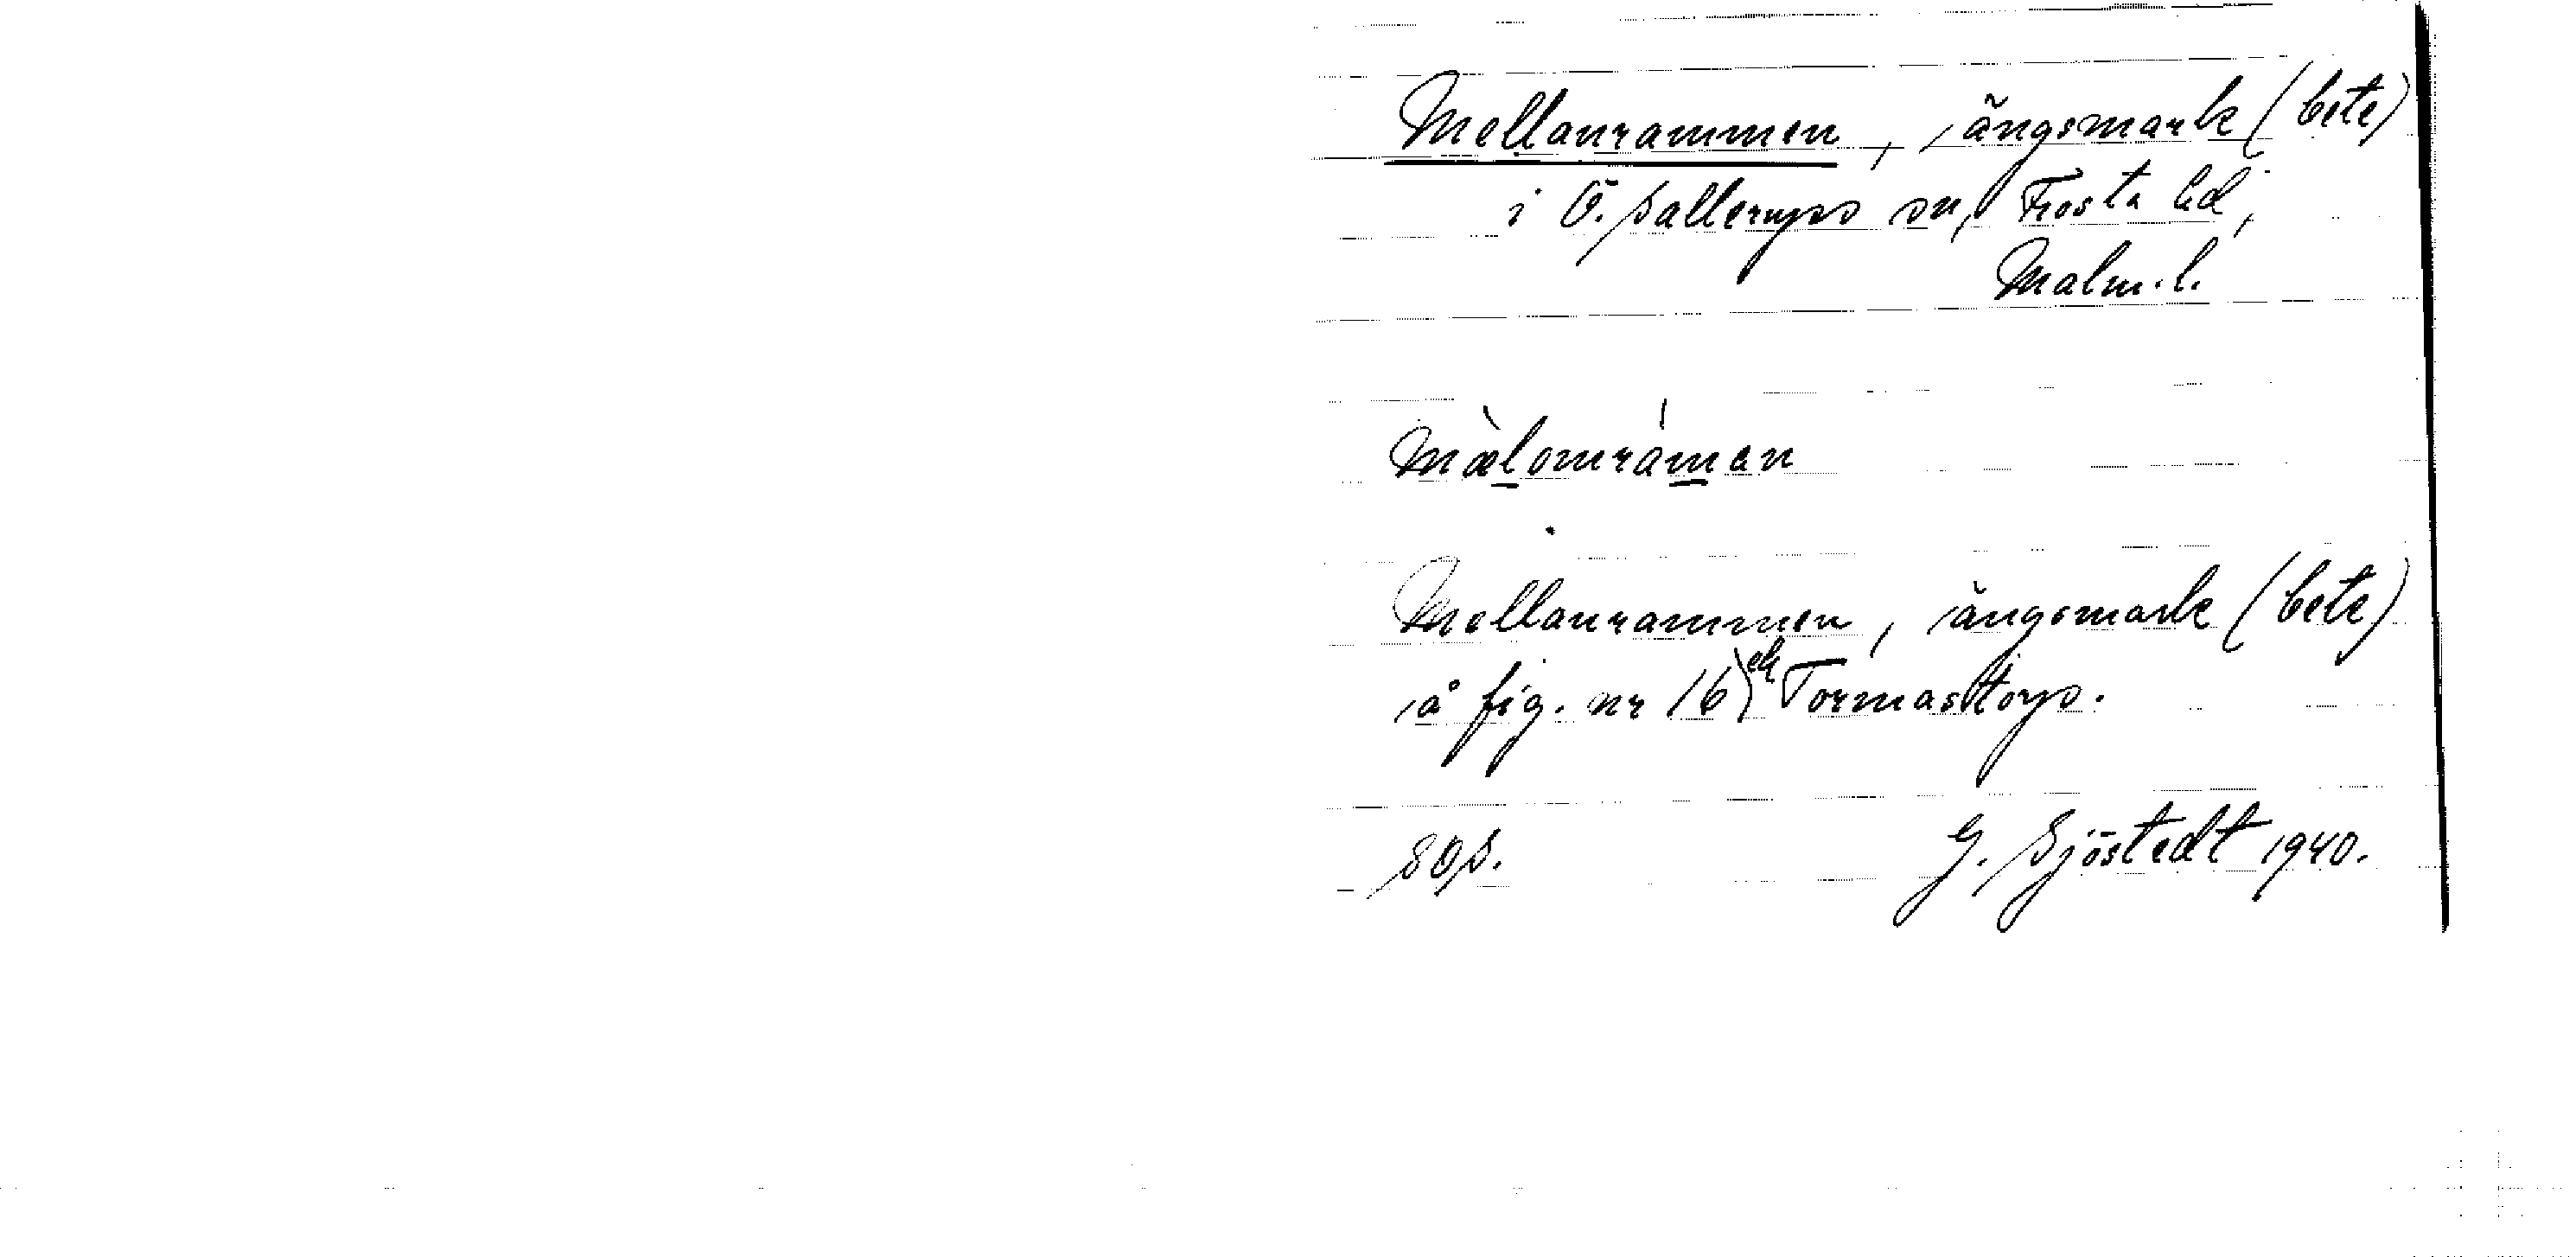 Mellanrammen, ängsmark (bete)
i Ö. Sallerups sn, Frosta hd,
Malm. l.
mælomramen
Mellanrammen, ängsmark (bete)
å fig. nr 16, Tormastorp.
SOS. G. Sjöstedt 1940.